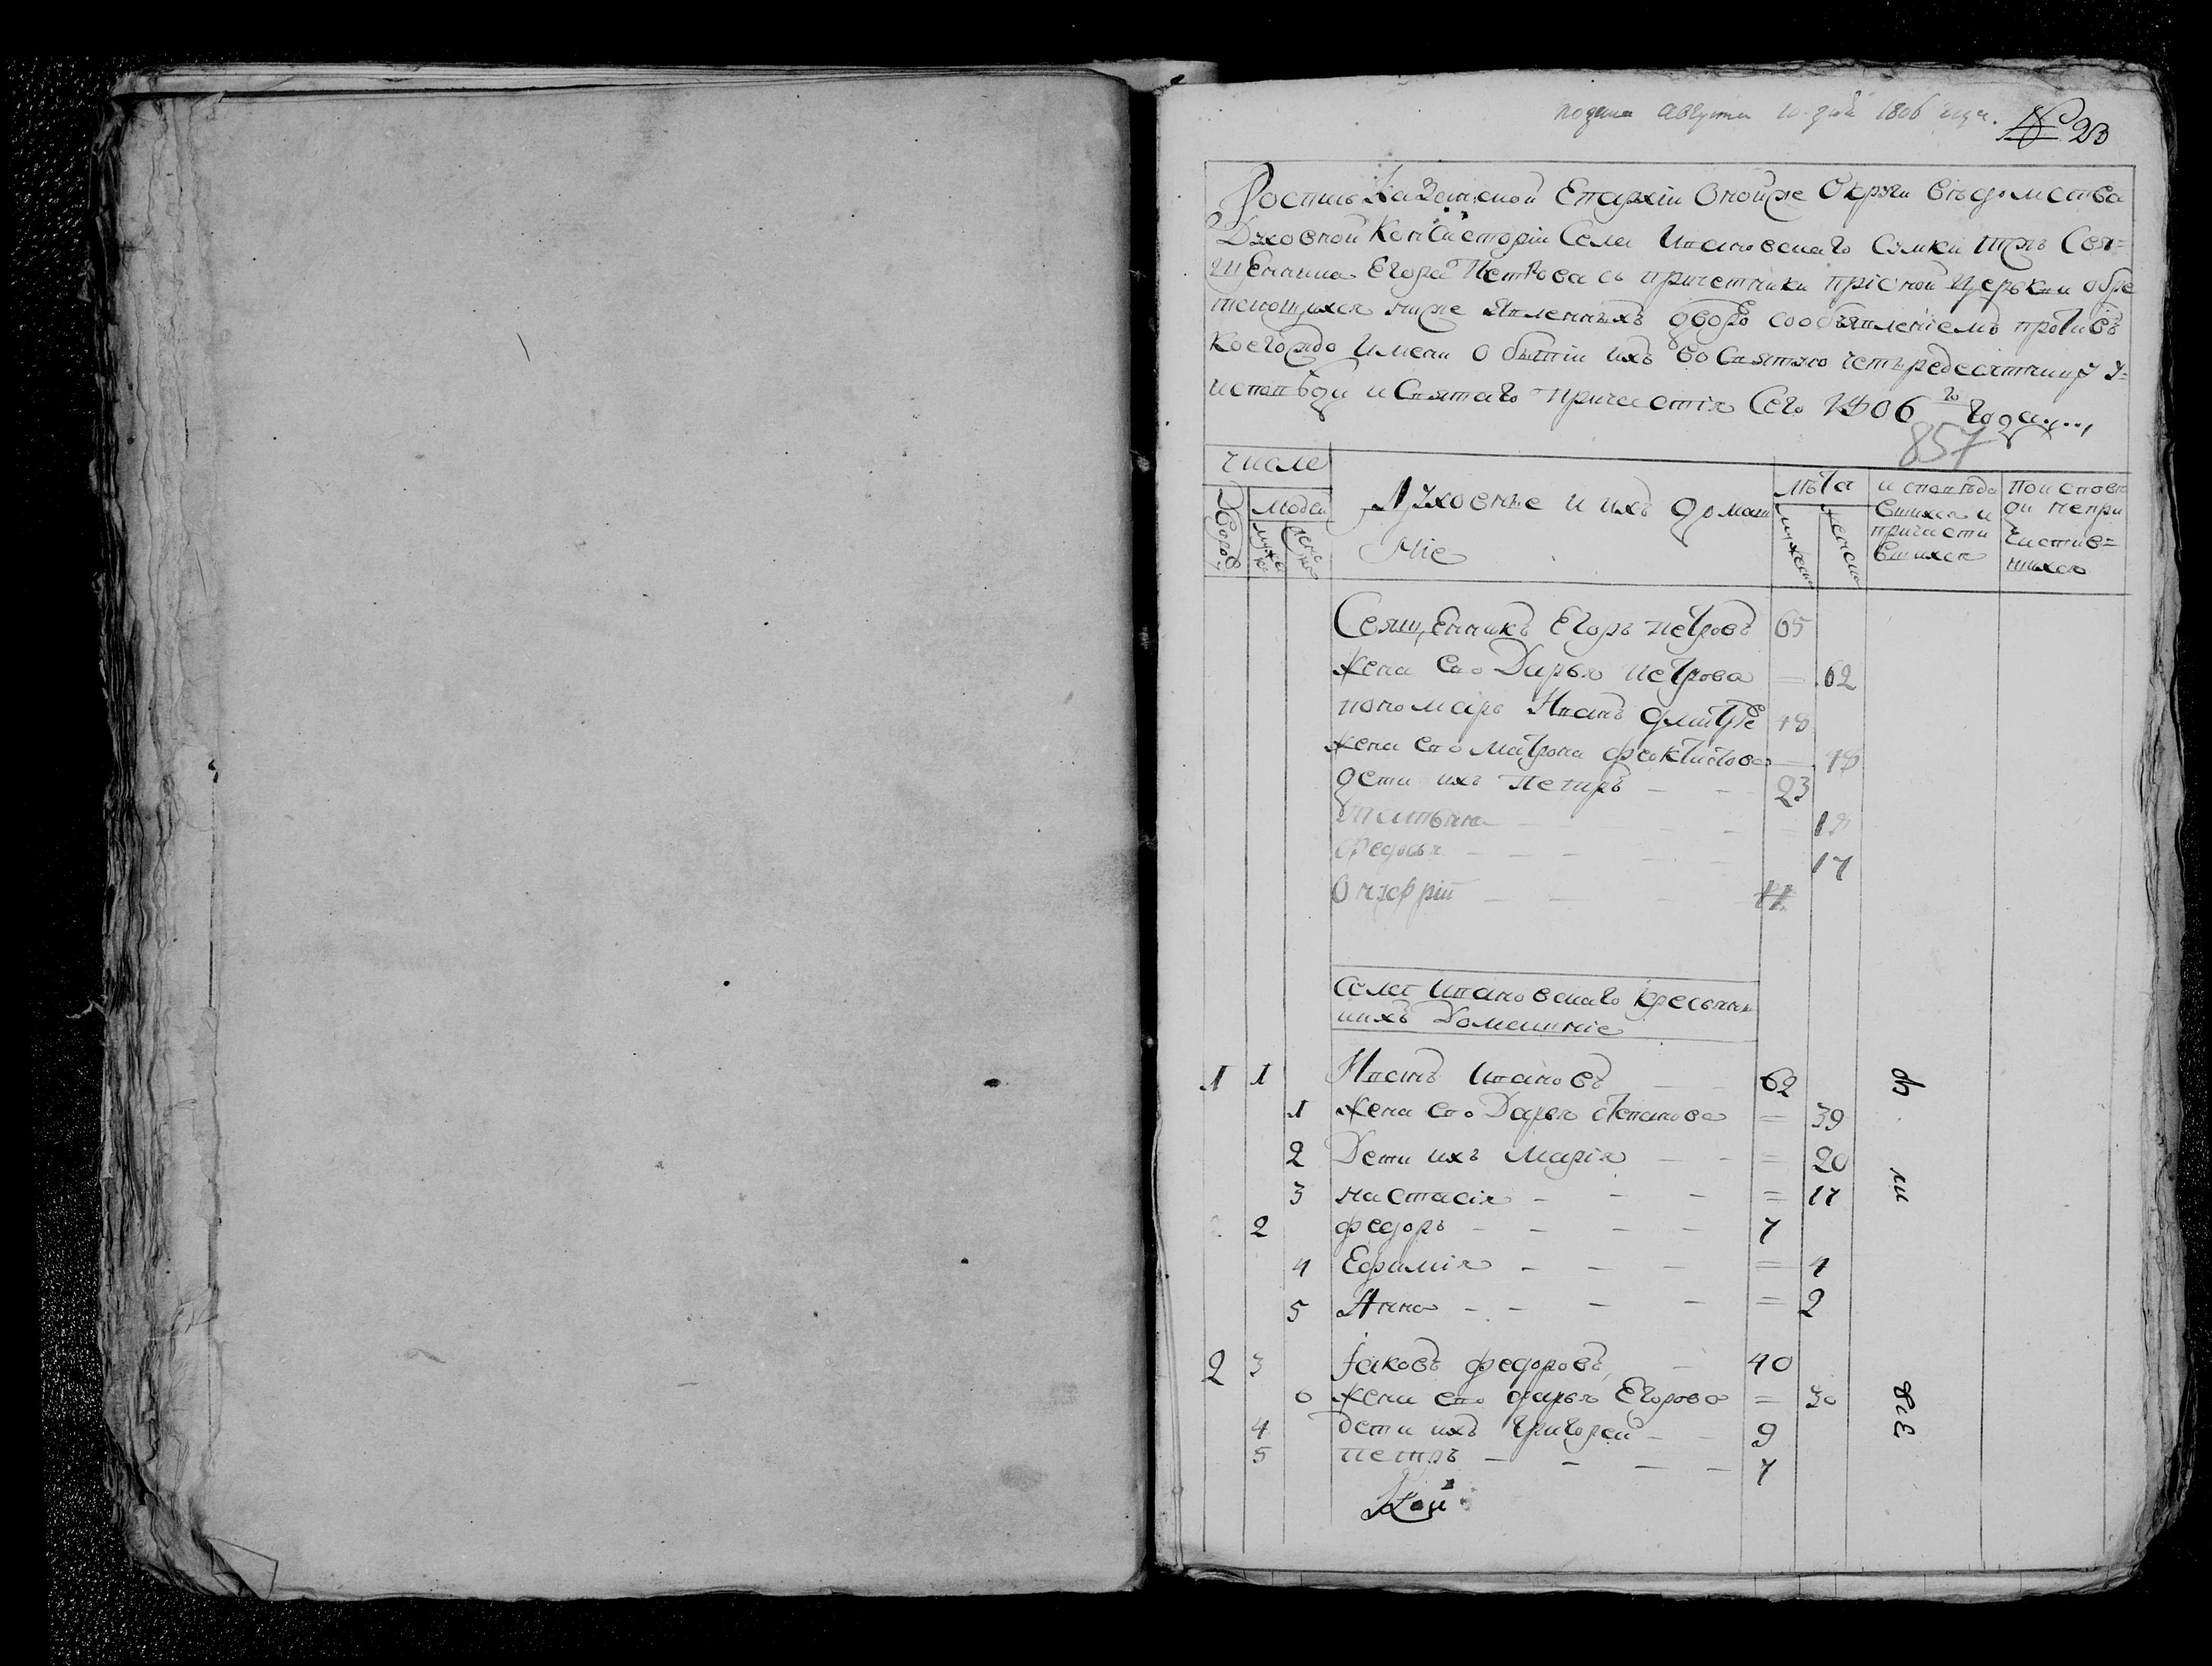 подана августа 10 дня 1806 года.
№ 23
Роспись Казанской Епархіи оной же Округи ведомства
Духовной Консисторіи Села Ивановскаго Сумки тож Свя=
щенника Егора Петрова съ причетники при оной церькви обре
тающихся ниже явленныхъ дворѣ со объявленіемъ противъ
коегождо имени о бытіи ихъ во Святую четыредесятницу у
исповѣди и Святаго причастія Сего 1806 го года...,
857
число
Дворов
людей
мужеска
женска
Духовные и ихъ домаш
ніе
лѣта
мужеска
женска
исповѣда
вшихся и
причасти
вшихся
по исповѣ
ди непри
частив=
шихся
Священникъ Егоръ петровъ 65
жена ево Дарья петрова = 62
пономарь Иванъ дмитре 48
жена ево матрона феоктистова — 48
дети ихъ Петиръ — — 23
татьяна — — 18
федосья — — — 17
Онуфрій — — — 11
Села Ивановскаго кресьяня
ихъ Домашніе
1 1 Иванъ Ивановъ — — 62
1 жена ево Дарья степанова = 39
2 Дети ихъ Марія — — = 20
3 настасія — — — = 17
2 федоръ — — — — 7
4 Ефимія — — — = 4
5 Анна — — — — = 2
2 3 Іаковъ федоровъ — 40
6 жена ево дарья Егорова = 30
4 дети ихъ григорей — — 9
5 петръ — — — — 7